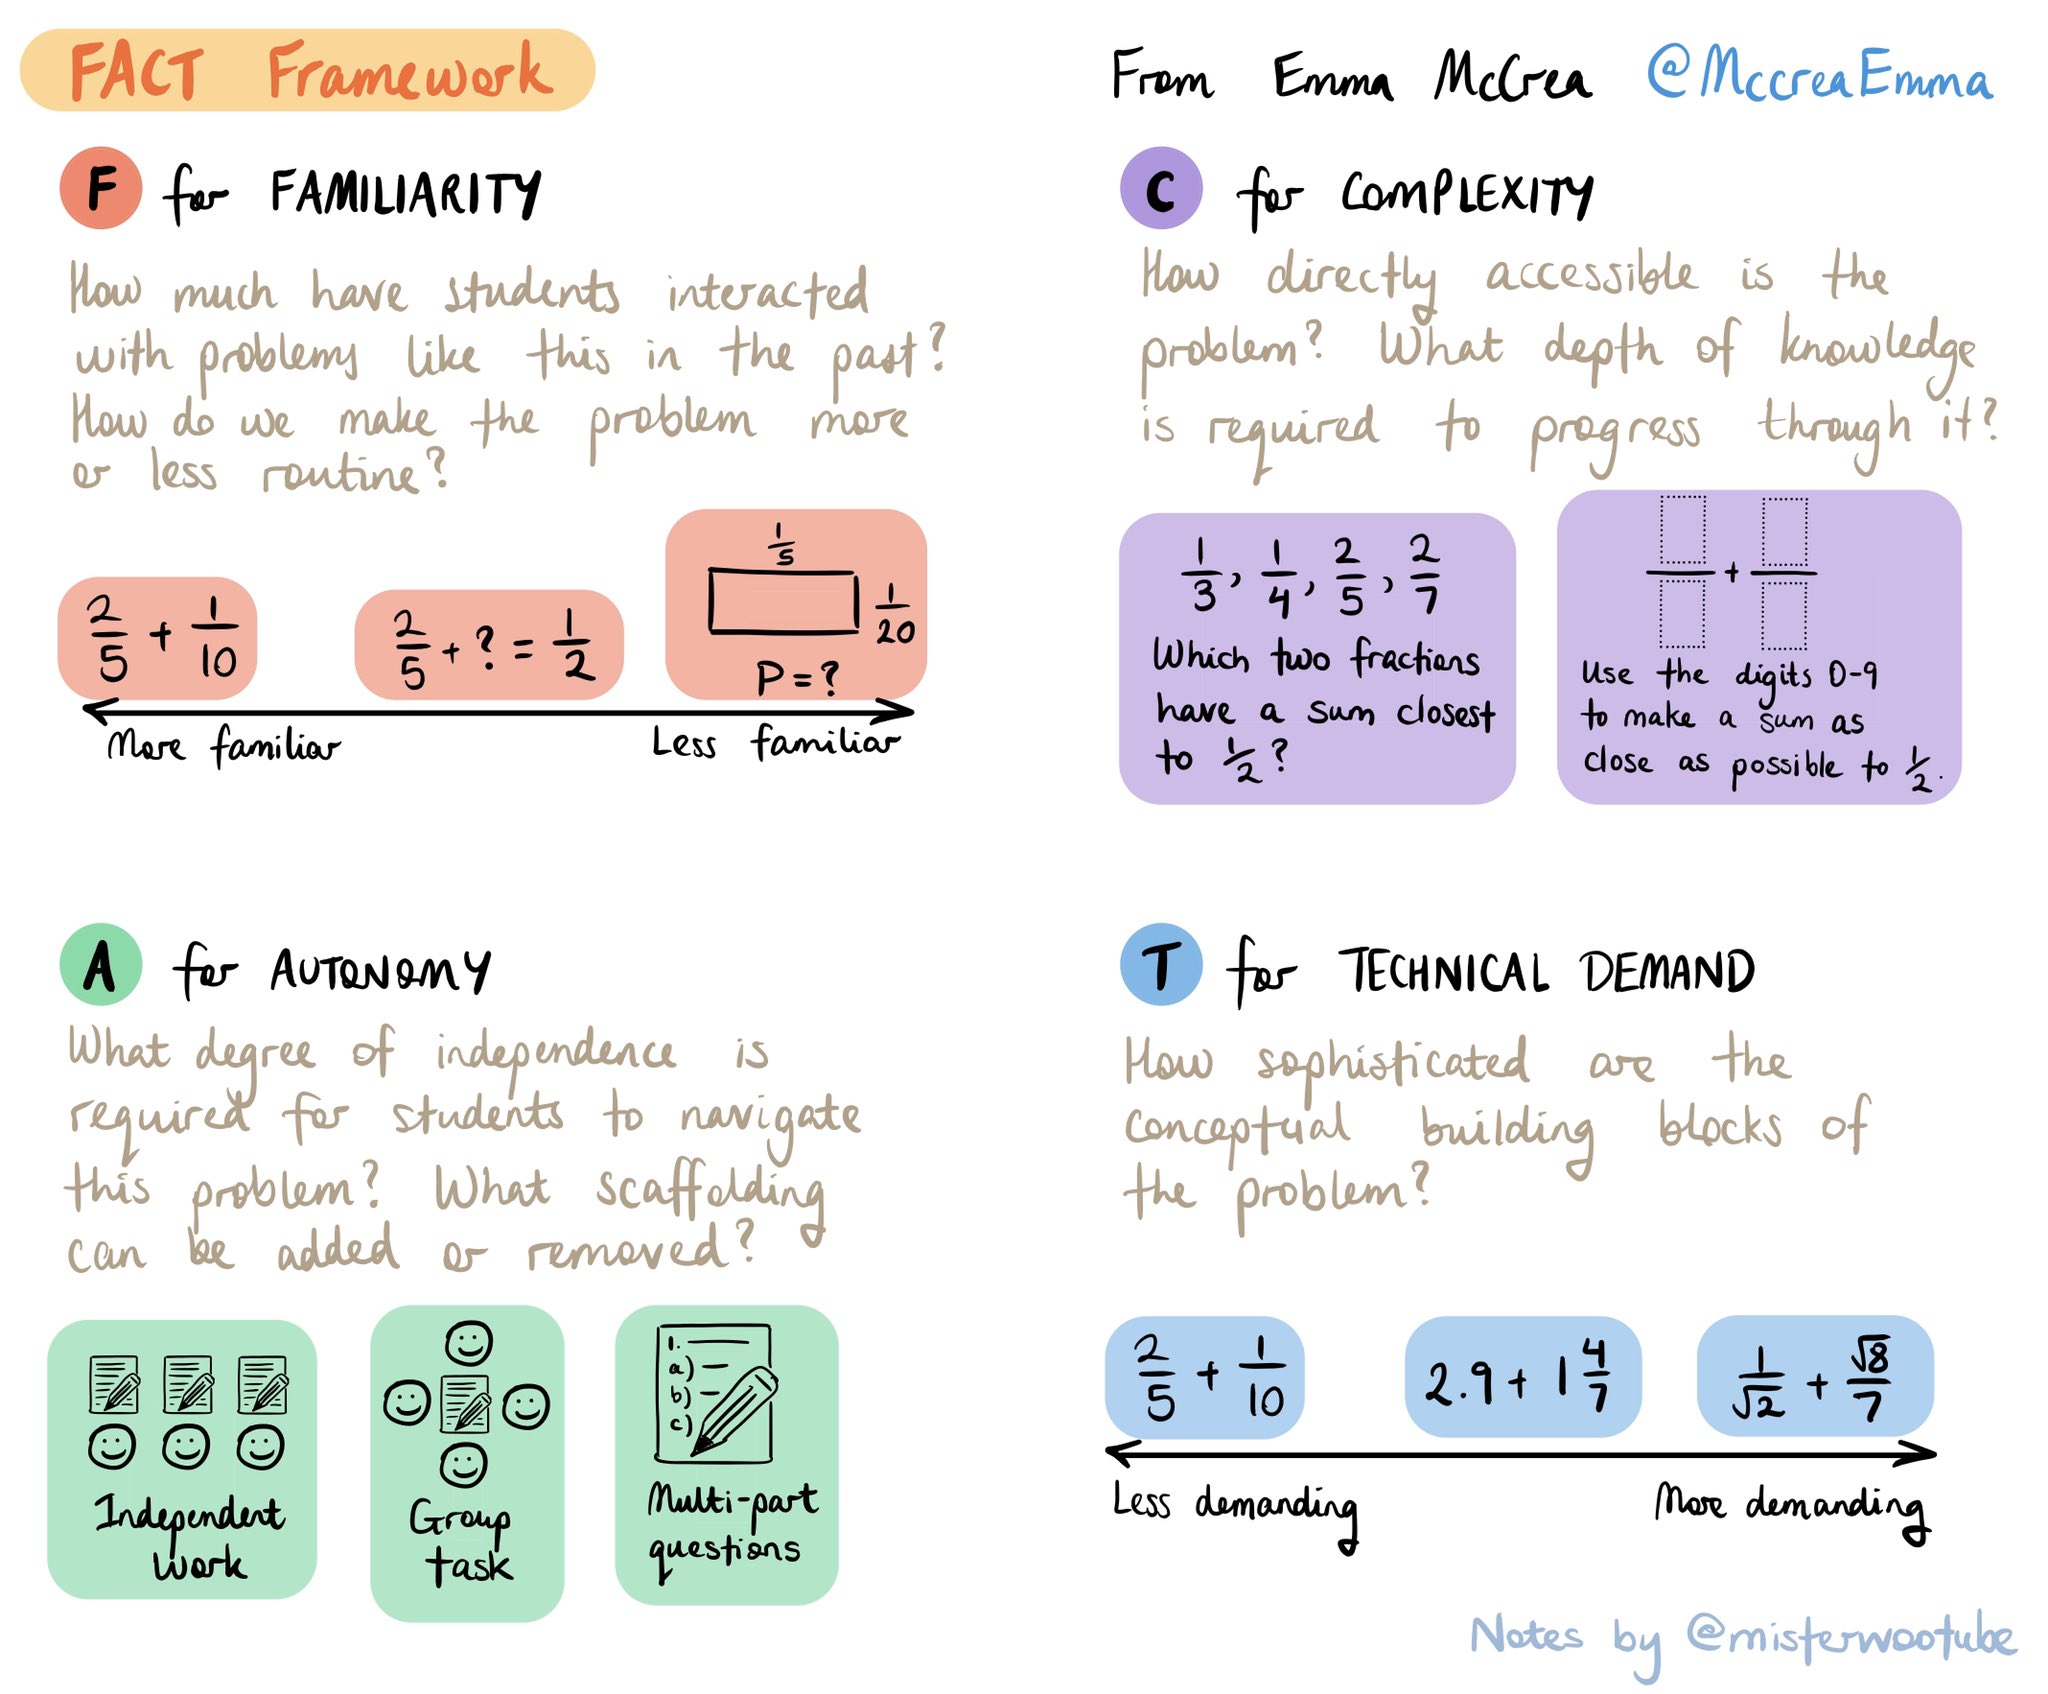 FACT Framework
From Emma McCrea @MccreaEmma
F for FAMILIARITY
How much have students interacted
with problems like this in the past?
How do we make the problem more
or less routine?
2/5 + 1/10
2/5 + ? = 1/2
1/5
1/20
P = ?
More familiar
Less familiar
C for COMPLEXITY
How directly accessible is the
problem? What depth of knowledge
is required to progress through it?
1/3, 1/4, 2/5, 2/7
Which two fractions
have a sum closest
to 1/2?
+
Use the digits 0-9
to make a sum as
close as possible to 1/2.
A for AUTONOMY
What degree of independence is
required for students to navigate
this problem? What scaffolding
can be added or removed?
Independent
Work
Group
task
1.
a)
b)
c)
Multi-part
questions
T for TECHNICAL DEMAND
How sophisticated are the
conceptual building blocks of
the problem?
2/5 + 1/10
2.9 + 1 4/7
1/√2 + √8/7
Less demanding
More demanding
Notes by @misterwootube